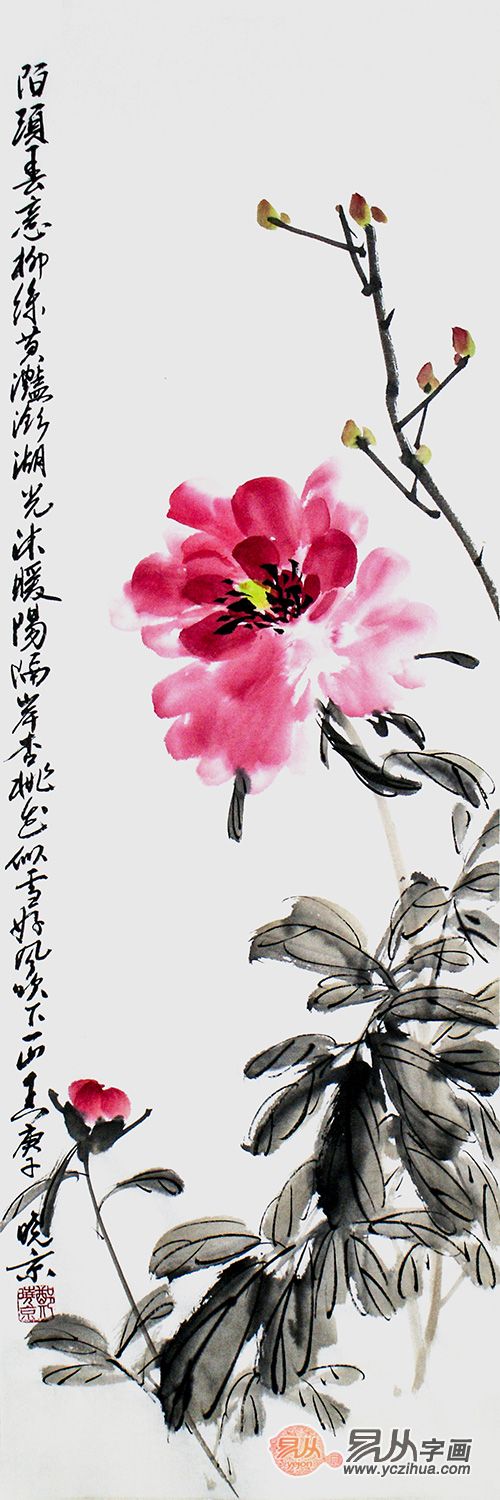 陌頭春意柳絲黄灩湖光沐暖陽隔岸杏桃花似雪好風吹下庚子
晓京
易从
易从字画
www.yczihua.com